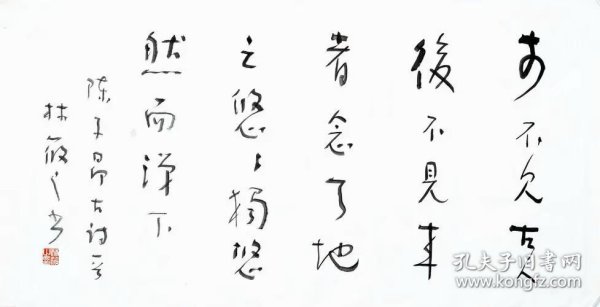 前不见古人
後不見来
者念天地
之悠々獨悠
然而涕下
陈子昂古诗
林筱之书
孔夫子旧书网
www.kongfz.com